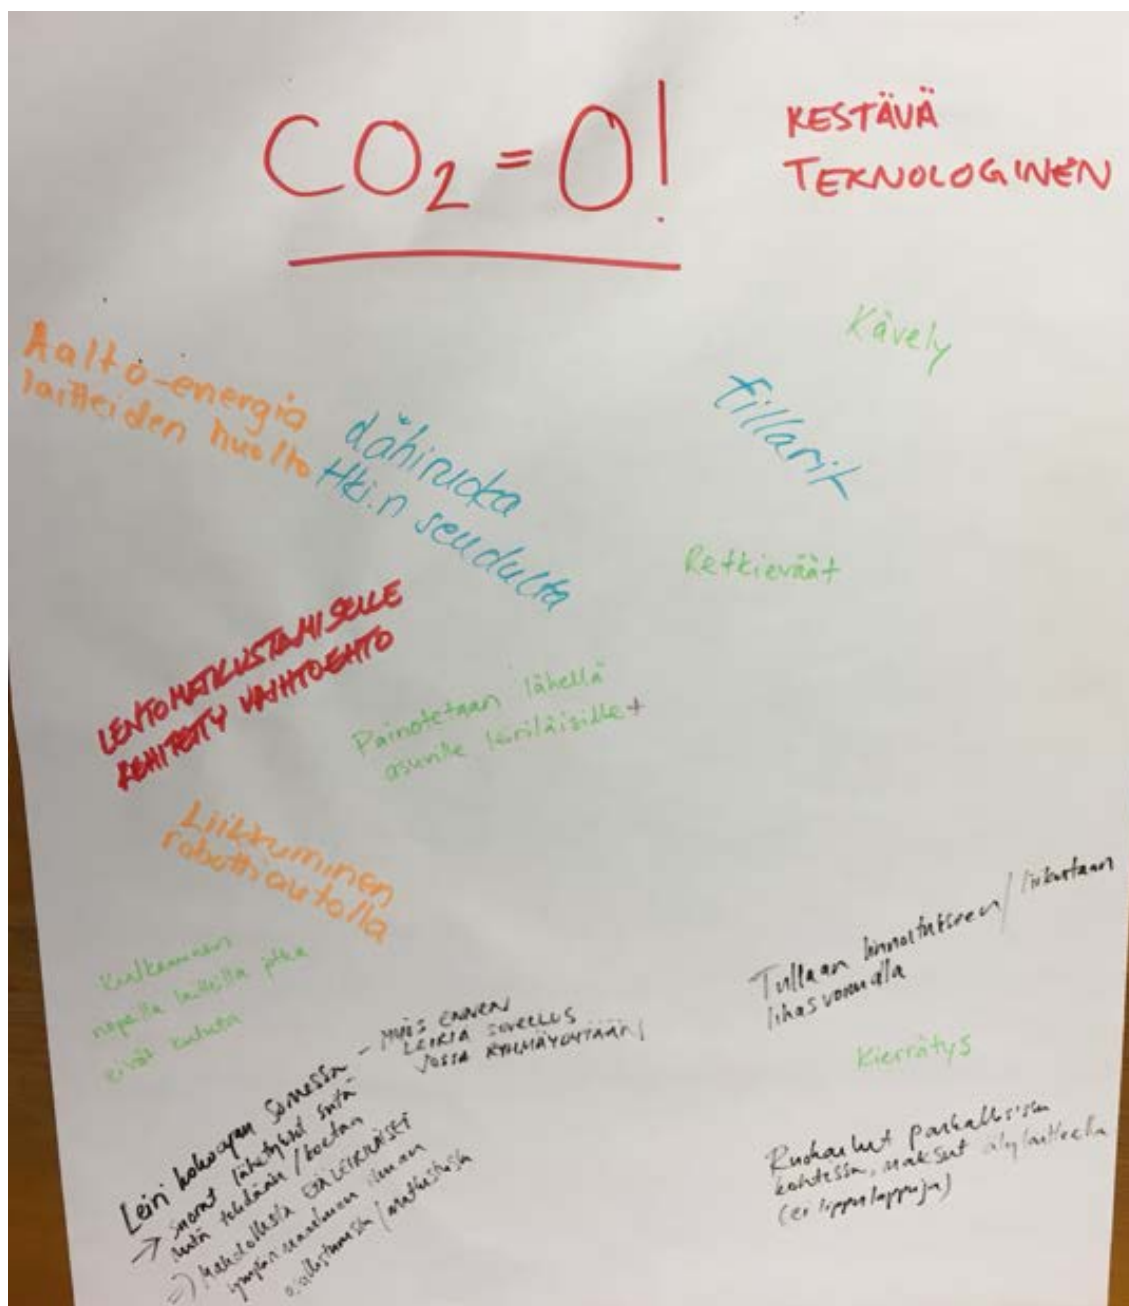 CO2 = 0!
KESTÄVÄ
TEKNOLOGINEN
Kävely
Aalto-energia
laitteiden huolto
Lähiruoka
Hki:n seudulta
fillarit
Retkieväät
LENTOMATKUSTAMISELLE
KEHITETTY VAIHTOEHTO
Painotetaan lähellä
asuville leiriläisille +
Liikkuminen
robottiautolla
Kulkeminen
nopeilla laitteilla jotka
eivät kuluta
Tullaan linnoitukseen / liikutaan
lihasvoimalla
Kierrätys
Leiri koko ajan Somessa - MYÖS ENNEN
LEIRIÄ SOVELLUS
JOSSA RYHMÄYDYTÄÄN!
→ suorat lähetykset siitä
mitä tehdään / koetaan
⇒ Mahdollista ETÄLEIRILÄISET
ympäri maailman ilman
/ matkustusta
Ruokailut paikallisissa
kohteissa, maksut älylaitteella
(ei lippulappuja)